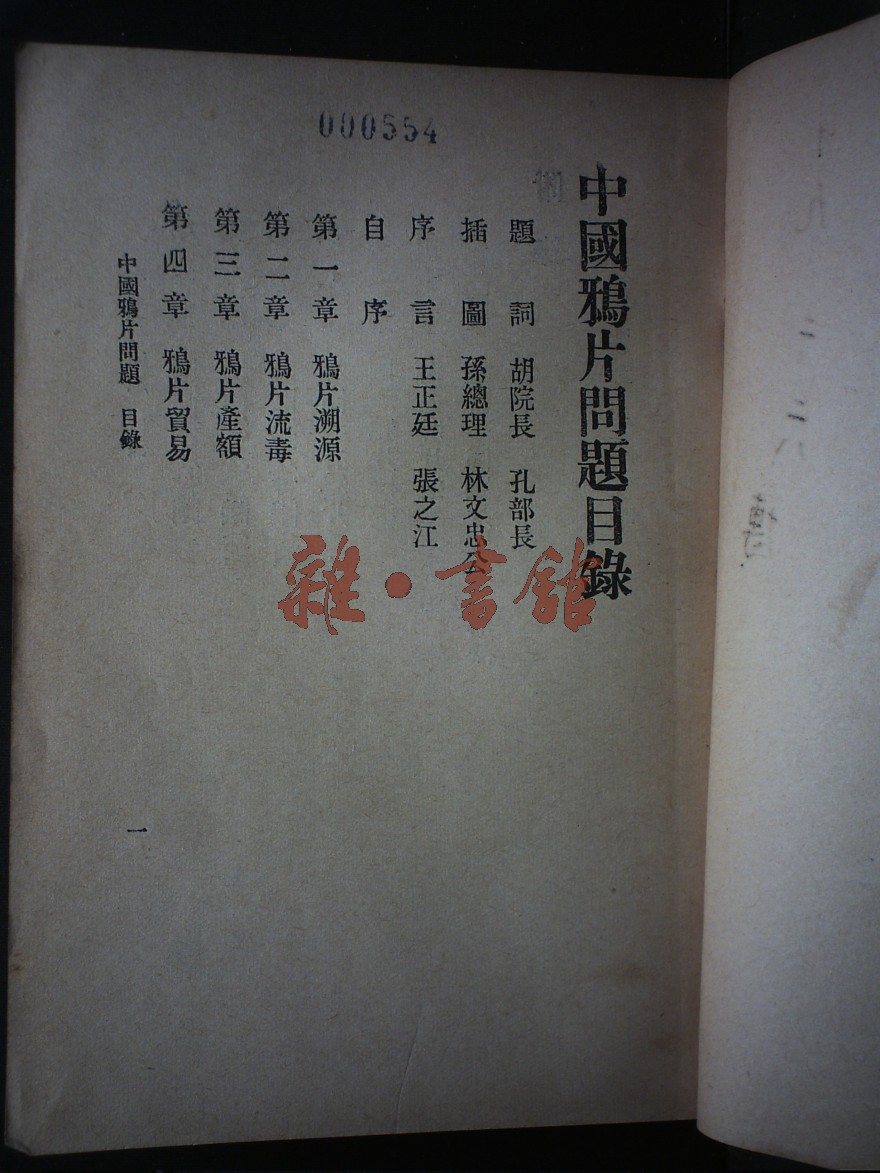 000554
中國鴉片問題目錄
題 詞 胡院長 孔部長
插 圖 孫總理 林文忠公
序 言 王正廷 張之江
自 序
第一章 鴉片溯源
第二章 鴉片流毒
第三章 鴉片產額
第四章 鴉片貿易
中國鴉片問題 目錄
一
雜·書館